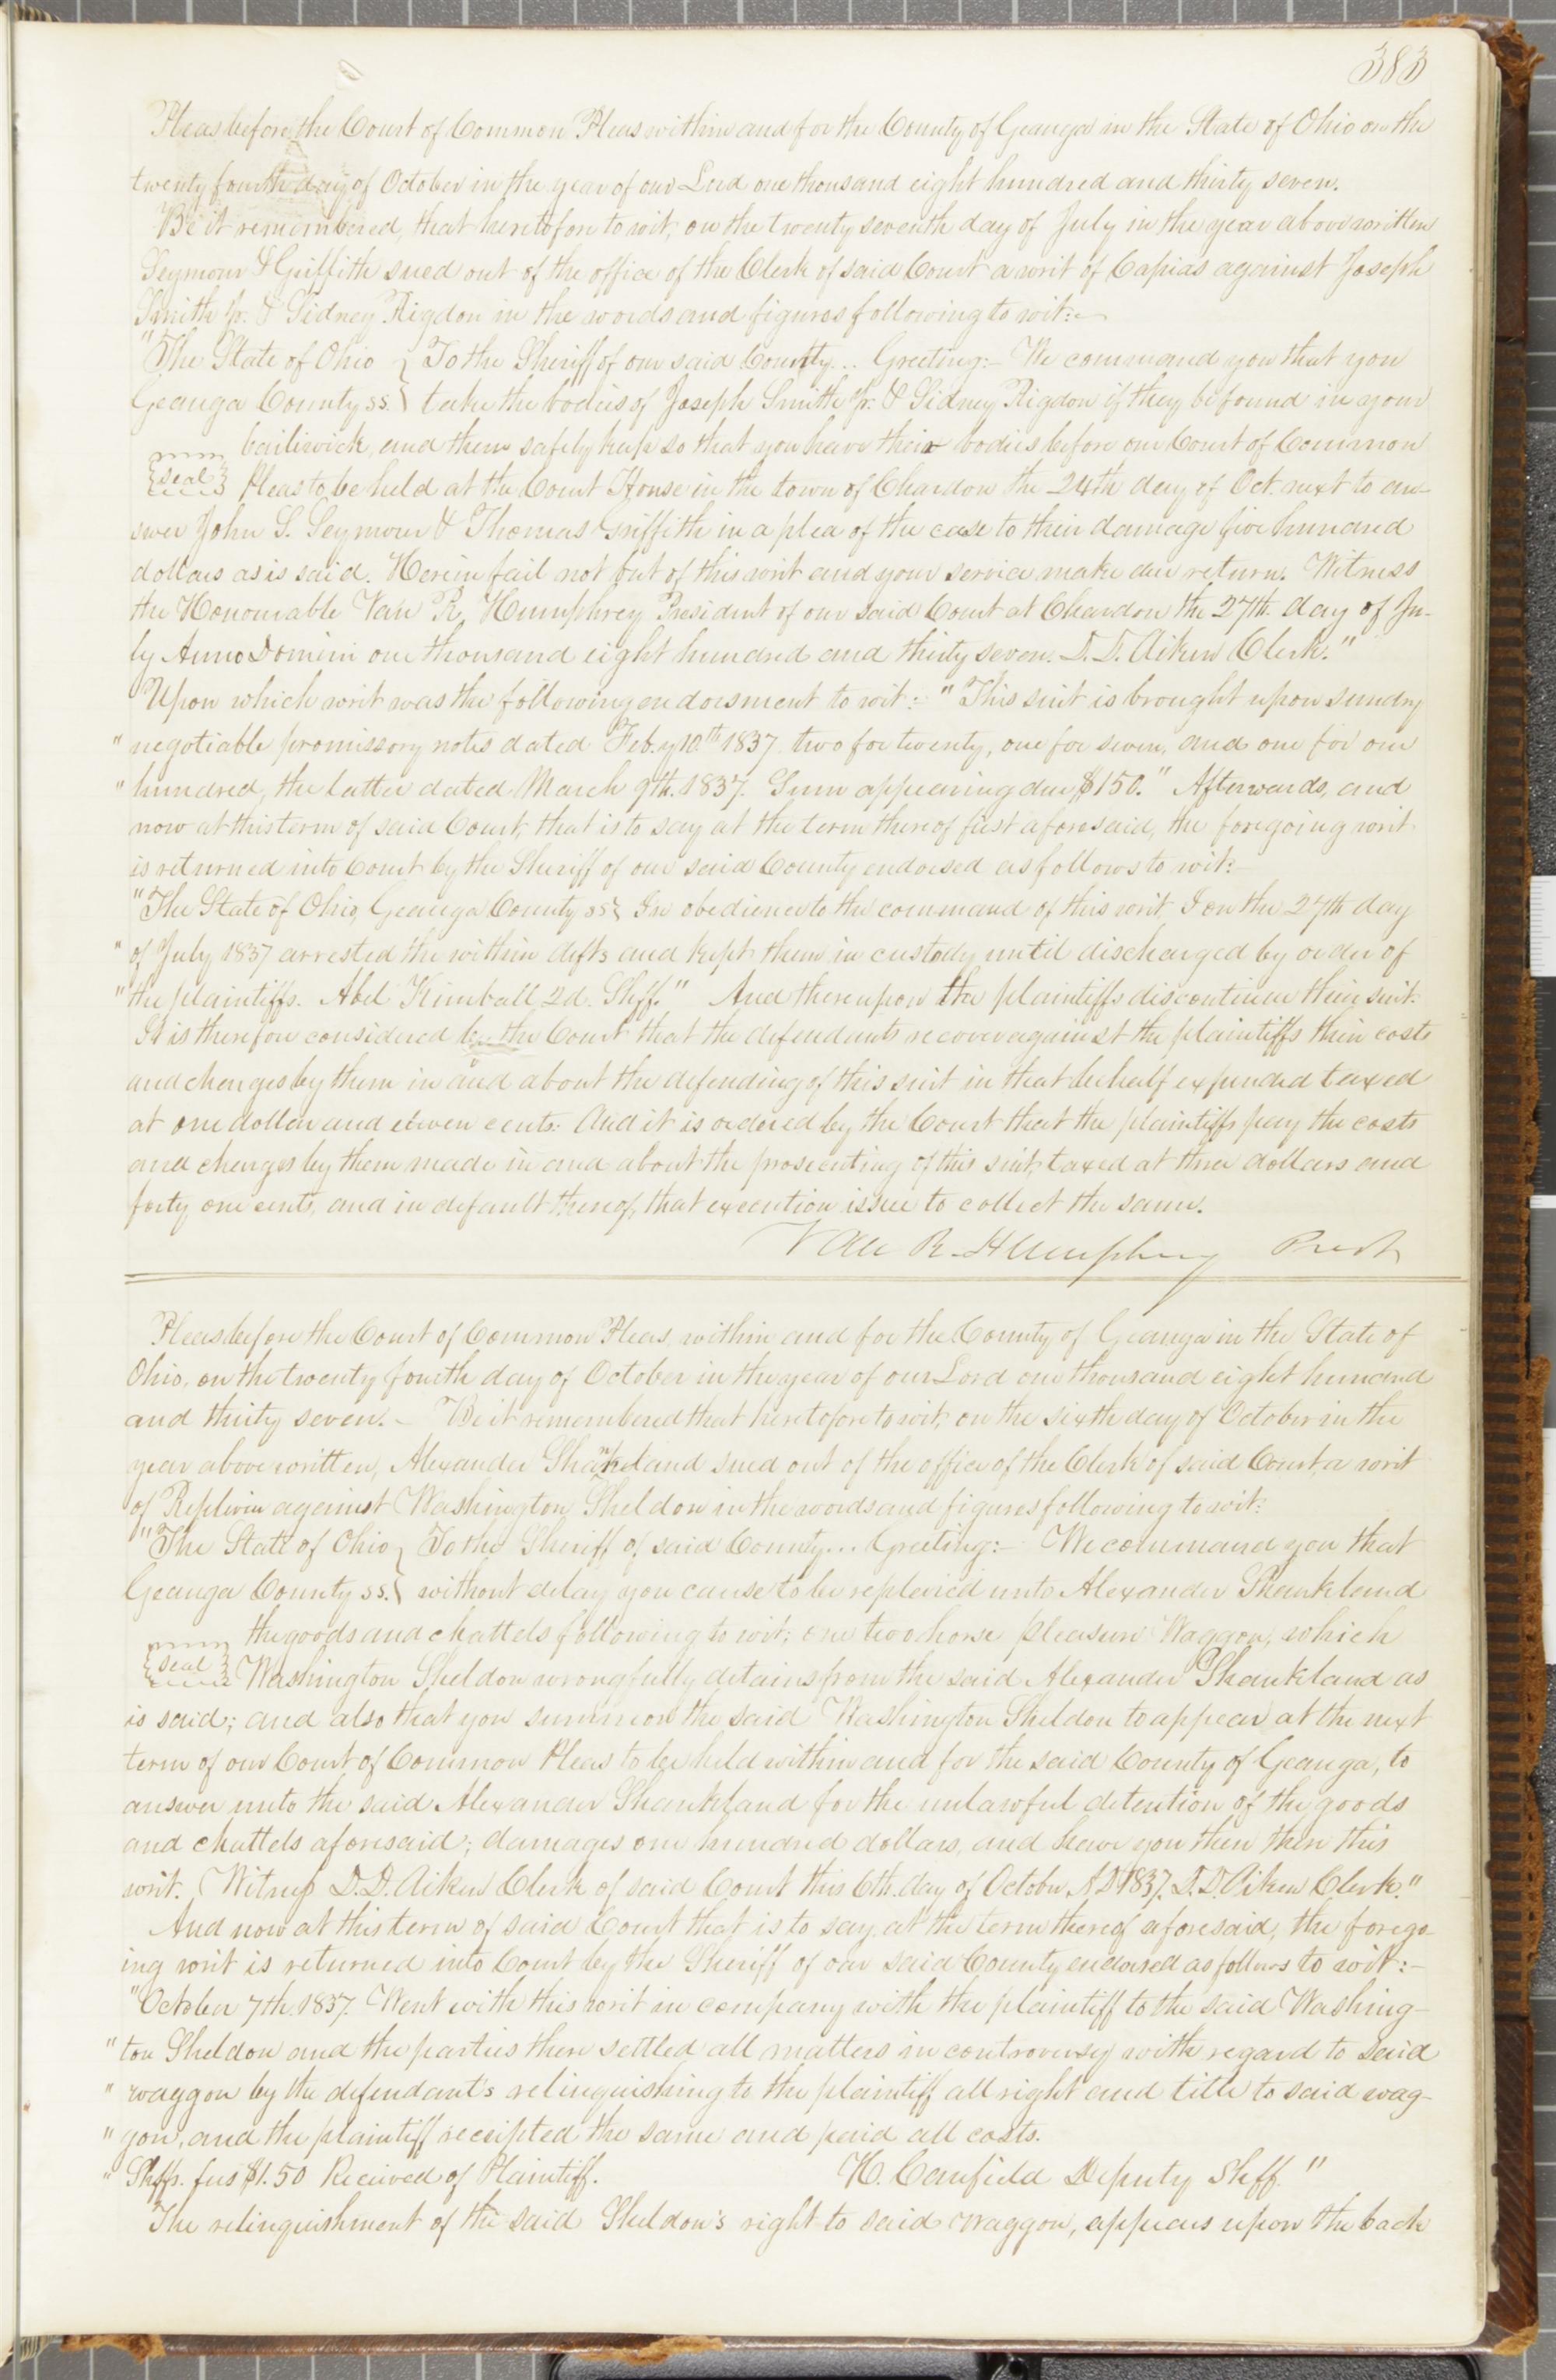 383
Pleas before the Court of Common Pleas within and for the County of Geauga in the State of Ohio on the
twenty fourth day of October in the year of our Lord one thousand eight hundred and thirty seven.
Be it remembered, that heretofore to wit; on the twenty seventh day of July in the year above written
Seymour & Griffith sued out of the office of the Clerk of said Court a writ of Capias against Joseph
Smith jr. & Sidney Rigdon in the words and figures following to wit:—
"The State of Ohio } To the Sheriff of our said County... Greeting:— We command you that you
Geauga County ss. } take the bodies of Joseph Smith jr. & Sidney Rigdon if they be found in your
bailiwick, and them safely keep so that you have their bodies before our Court of Common
{seal} Pleas to be held at the Court House in the town of Chardon the 24th day of Oct. next to an-
swer John S. Seymour & Thomas Griffith in a plea of the case to their damage five hundred
dollars as is said. Herein fail not but of this writ and your service make due return. Witness
the Honourable Van R. Humphrey President of our said Court at Chardon the 27th. day of Ju-
ly Anno Domini one thousand eight hundred and thirty seven. D. D. Aiken Clerk."
Upon which writ was the following endorsment to wit:— "This suit is brought upon sundry
" negotiable promissory notes dated Feb.y 10.th 1837 two for twenty, one for seven, and one for one
" hundred, the latter dated March 9th. 1837. Sum appearing due $150." Afterwards, and
now at this term of said Court, that is to say at the term thereof first aforesaid, the foregoing writ
is returned into Court by the Sheriff of our said County endorsed as follows to wit:—
"The State of Ohio, Geauga County ss} In obedience to the command of this writ, I on the 27th day
" of July 1837 arrested the within defts and kept them in custody until discharged by order of
" the plaintiffs. Abel Kimball 2d. Shff." And thereupon the plaintiffs discontinue their suit.
It is therefore considered by the Court that the defendants recover against the plaintiffs their costs
and charges by them in and about the defending of this suit in that behalf expended taxed
at one dollar and eleven cents. And it is ordered by the Court that the plaintiffs pay the costs
and charges by them made in and about the prosecuting of this suit, taxed at three dollars and
forty one cents, and in default thereof, that execution issue to collect the same.
Van R. Humphrey Prest
Pleas before the Court of Common Pleas, within and for the County of Geauga in the State of
Ohio, on the twenty fourth day of October in the year of our Lord one thousand eight hundred
and thirty seven.— Be it remembered that heretofore to wit; on the sixth day of October in the
year above written, Alexander Shankland sued out of the office of the Clerk of said Court, a writ
of Replivin against Washington Sheldon in the words and figures following to wit:
"The State of Ohio } To the Sheriff of said County... Greeting:— We command you that
Geauga County ss. } without delay you cause to be replevied unto Alexander Shankland
the goods and chattels following to wit: one two horse pleasure Waggon, which
{seal} Washington Sheldon wrongfully detains from the said Alexander Shankland as
is said; and also that you summon the said Washington Sheldon to appear at the next
term of our Court of Common Pleas to be held within and for the said County of Geauga, to
answer unto the said Alexander Shankland for the unlawful detention of the goods
and chattels aforesaid; damages one hundred dollars, and have you then there this
writ. Witness D. D. Aiken Clerk of said Court this 6th. day of October A D 1837. D. D. Aiken Clerk."
And now at this term of said Court that is to say at the term thereof aforesaid, the forego-
ing writ is returned into Court by the Sheriff of our said County endorsed as follows to wit:—
"October 7th. 1837. Went with this writ in company with the plaintiff to the said Washing-
" ton Sheldon and the parties there settled all matters in controversy with regard to said
" waggon by the defendant's relinquishing to the plaintiff all right and title to said wag-
" gon, and the plaintiff receipted the same and paid all costs.
" Shffs. fees $1.50 Recieved of Plaintiff. H. Canfield Deputy Shff."
The relinquishment of the said Sheldon's right to said waggon, appears upon the back